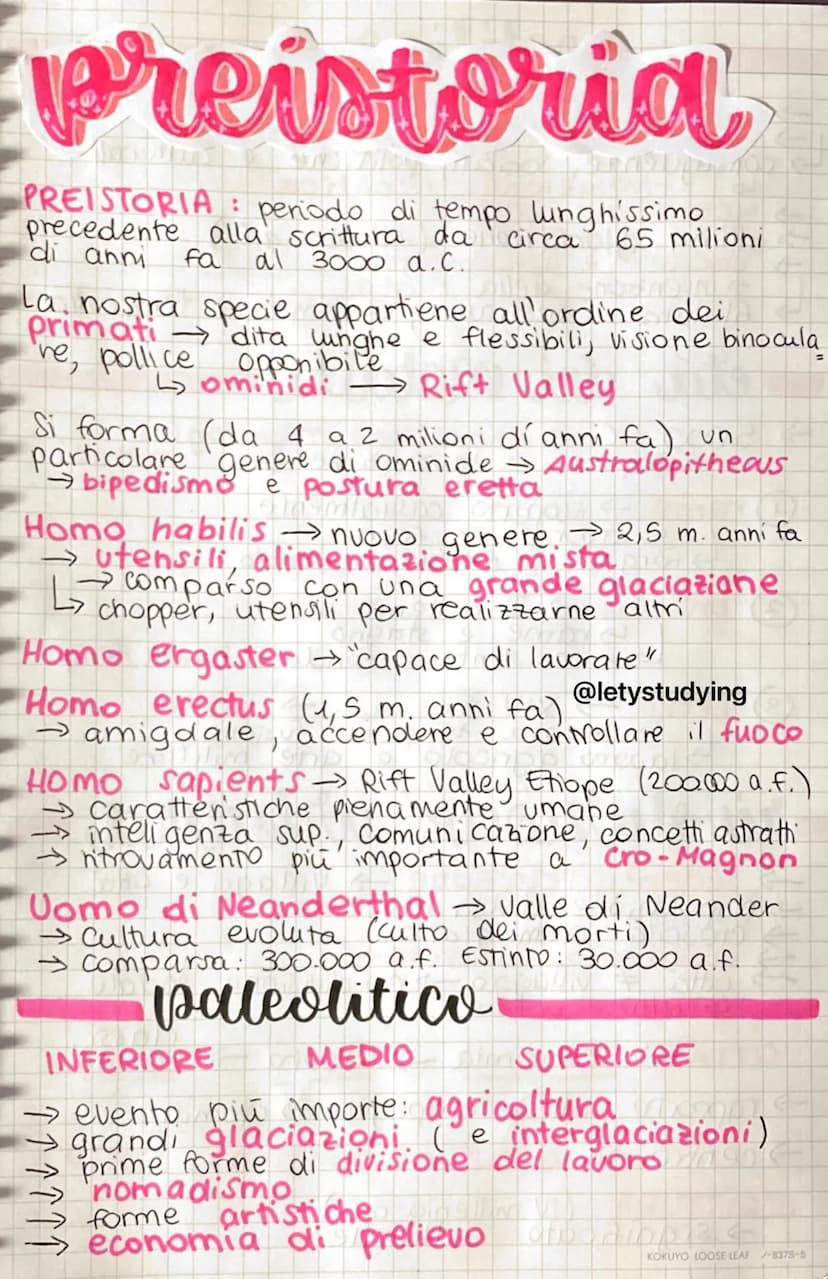 preistoria
PREISTORIA : periodo di tempo lunghissimo
precedente alla scrittura da circa 65 milioni
di anni fa al 3000 a.C.
La nostra specie appartiene all'ordine dei
primati → dita lunghe e flessibili, visione binocula
re, pollice opponibile
↳ ominidi → Rift Valley
Si forma (da 4 a 2 milioni di anni fa) un
particolare genere di ominide → Australopitheous
→ bipedismo e postura eretta
Homo habilis → nuovo genere → 2,5 m. anni fa
→ utensili, alimentazione mista
↳ comparso con una grande glaciazione
↳ chopper, utensili per realizzarne altri
Homo ergaster → "capace di lavorate"
@letystudying
Homo erectus (1,5 m. anni fa)
→ amigdale, accendere e controllare il fuoco
Homo sapients → Rift Valley Etiope (200.000 a.f.)
→ caratteristiche pienamente umane
→ inteligenza sup., comunicazione, concetti astratti
→ ritrovamento più importante a Cro-Magnon
Uomo di Neanderthal → Valle di Neander
→ cultura evoluta (culto dei morti)
→ comparsa: 300.000 a.f. Estinto: 30.000 a.f.
paleolitico
INFERIORE MEDIO SUPERIORE
→ evento più importe: agricoltura
→ grandi glaciazioni (e interglaciazioni)
→ prime forme di divisione del lavoro
→ nomadismo
→ forme artistiche
→ economia di prelievo
KOKUYO LOOSE LEAF /-837S-5